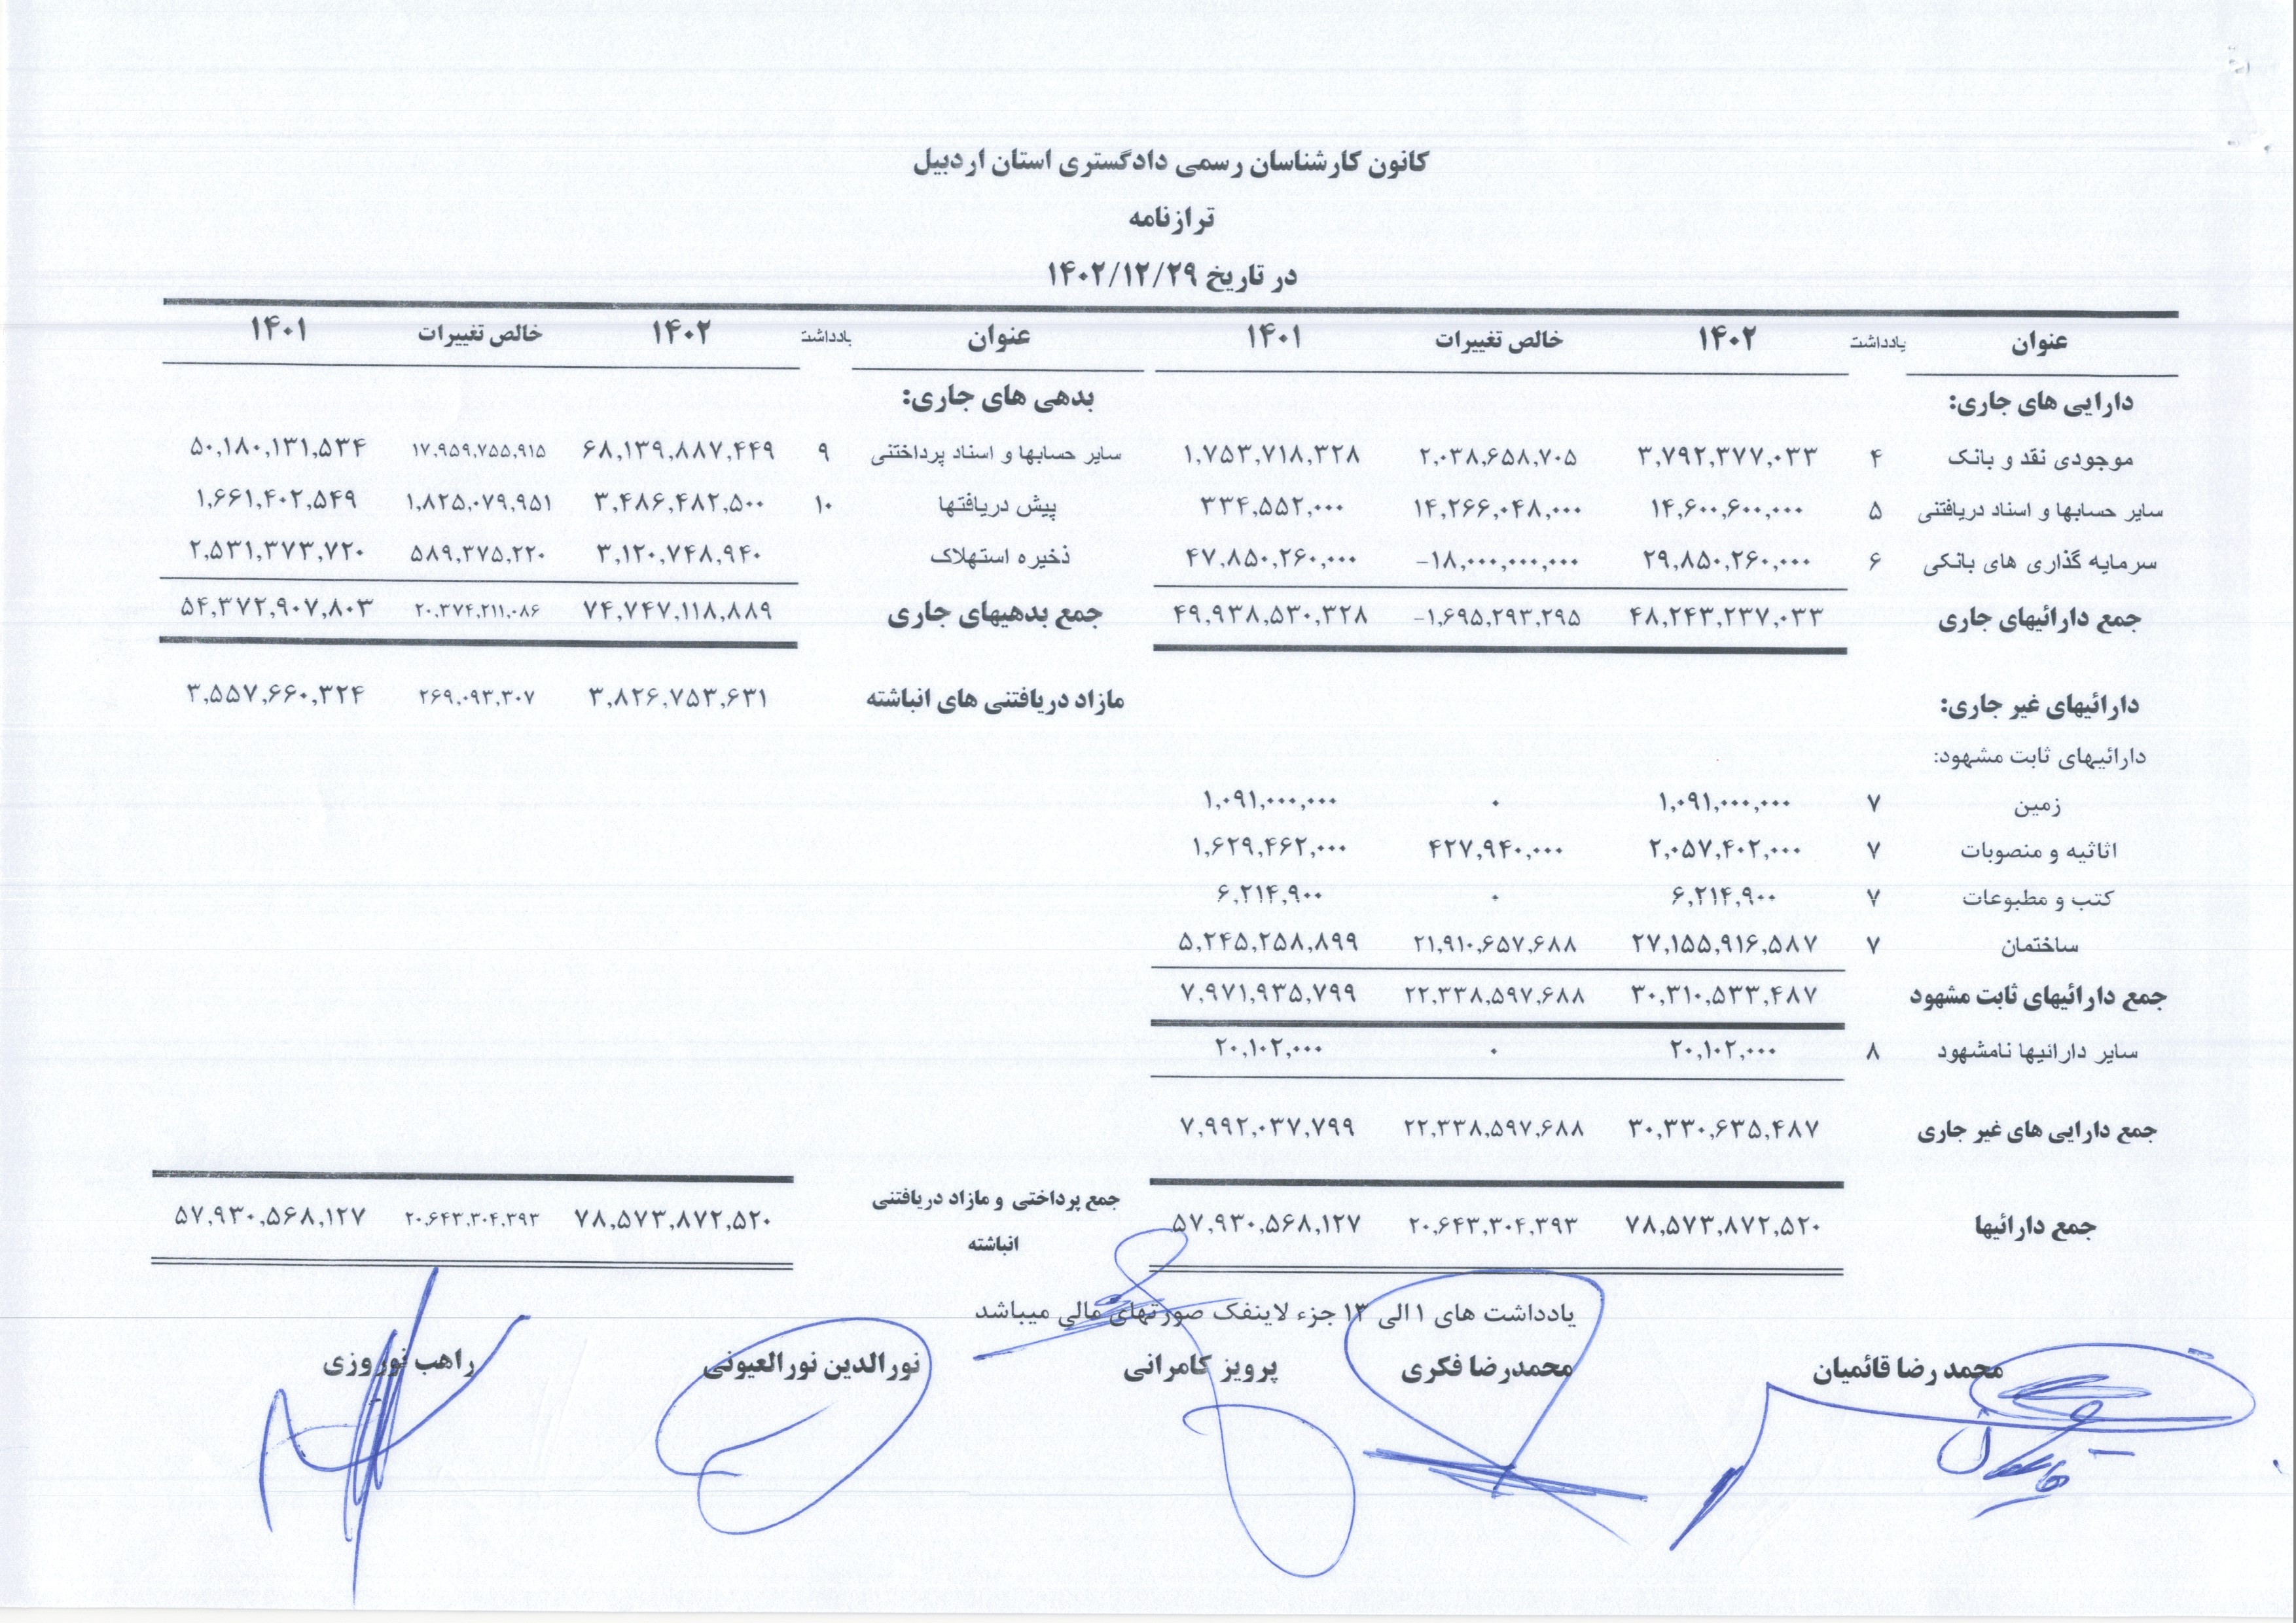 کانون کارشناسان رسمی دادگستری استان اردبیل
ترازنامه
در تاریخ ۱۴۰۲/۱۲/۲۹
عنوان یادداشت ۱۴۰۲ خالص تغییرات ۱۴۰۱ عنوان یادداشت ۱۴۰۲ خالص تغییرات ۱۴۰۱
دارایی های جاری: بدهی های جاری:
موجودی نقد و بانک ۴ ۳,۷۹۲,۳۷۷,۰۳۳ ۲,۰۳۸,۶۵۸,۷۰۵ ۱,۷۵۳,۷۱۸,۳۲۸ سایر حسابها و اسناد پرداختنی ۹ ۶۸,۱۳۹,۸۸۷,۴۴۹ ۱۷,۹۵۹,۷۵۵,۹۱۵ ۵۰,۱۸۰,۱۳۱,۵۳۴
سایر حسابها و اسناد دریافتنی ۵ ۱۴,۶۰۰,۶۰۰,۰۰۰ ۱۴,۲۶۶,۰۴۸,۰۰۰ ۳۳۴,۵۵۲,۰۰۰ پیش دریافتها ۱۰ ۳,۴۸۶,۴۸۲,۵۰۰ ۱,۸۲۵,۰۷۹,۹۵۱ ۱,۶۶۱,۴۰۲,۵۴۹
سرمایه گذاری های بانکی ۶ ۲۹,۸۵۰,۲۶۰,۰۰۰ -۱۸,۰۰۰,۰۰۰,۰۰۰ ۴۷,۸۵۰,۲۶۰,۰۰۰ ذخیره استهلاک ۳,۱۲۰,۷۴۸,۹۴۰ ۵۸۹,۳۷۵,۲۲۰ ۲,۵۳۱,۳۷۳,۷۲۰
جمع دارائیهای جاری ۴۸,۲۴۳,۲۳۷,۰۳۳ -۱,۶۹۵,۲۹۳,۲۹۵ ۴۹,۹۳۸,۵۳۰,۳۲۸ جمع بدهیهای جاری ۷۴,۷۴۷,۱۱۸,۸۸۹ ۲۰,۳۷۴,۲۱۱,۰۸۶ ۵۴,۳۷۲,۹۰۷,۸۰۳
دارائیهای غیر جاری: مازاد دریافتنی های انباشته ۳,۸۲۶,۷۵۳,۶۳۱ ۲۶۹,۰۹۳,۳۰۷ ۳,۵۵۷,۶۶۰,۳۲۴
دارائیهای ثابت مشهود:
زمین ۷ ۱,۰۹۱,۰۰۰,۰۰۰ ۰ ۱,۰۹۱,۰۰۰,۰۰۰
اثاثیه و منصوبات ۷ ۲,۰۵۷,۴۰۲,۰۰۰ ۴۲۷,۹۴۰,۰۰۰ ۱,۶۲۹,۴۶۲,۰۰۰
کتب و مطبوعات ۷ ۶,۲۱۴,۹۰۰ ۰ ۶,۲۱۴,۹۰۰
ساختمان ۷ ۲۷,۱۵۵,۹۱۶,۵۸۷ ۲۱,۹۱۰,۶۵۷,۶۸۸ ۵,۲۴۵,۲۵۸,۸۹۹
جمع دارائیهای ثابت مشهود ۳۰,۳۱۰,۵۳۳,۴۸۷ ۲۲,۳۳۸,۵۹۷,۶۸۸ ۷,۹۷۱,۹۳۵,۷۹۹
سایر دارائیها نامشهود ۸ ۲۰,۱۰۲,۰۰۰ ۰ ۲۰,۱۰۲,۰۰۰
جمع دارایی های غیر جاری ۳۰,۳۳۰,۶۳۵,۴۸۷ ۲۲,۳۳۸,۵۹۷,۶۸۸ ۷,۹۹۲,۰۳۷,۷۹۹
جمع دارائیها ۷۸,۵۷۳,۸۷۲,۵۲۰ ۲۰,۶۴۳,۳۰۴,۳۹۳ ۵۷,۹۳۰,۵۶۸,۱۲۷ جمع پرداختی و مازاد دریافتنی انباشته ۷۸,۵۷۳,۸۷۲,۵۲۰ ۲۰,۶۴۳,۳۰۴,۳۹۳ ۵۷,۹۳۰,۵۶۸,۱۲۷
یادداشت های ۱ الی ۱۳ جزء لاینفک صورتهای مالی میباشد
محمد رضا قائمیان محمدرضا فکری پرویز کامرانی نورالدین نورالعیونی راهب نوروزی